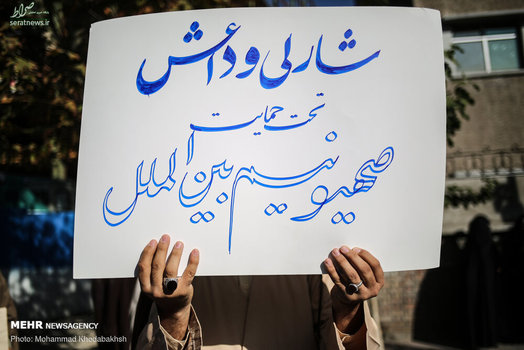 صراط
seratnews.ir
شارلی و داعش
تحت حمایت
صهیونیسم بین الملل
MEHR NEWSAGENCY
Photo: Mohammad Khodabakhsh